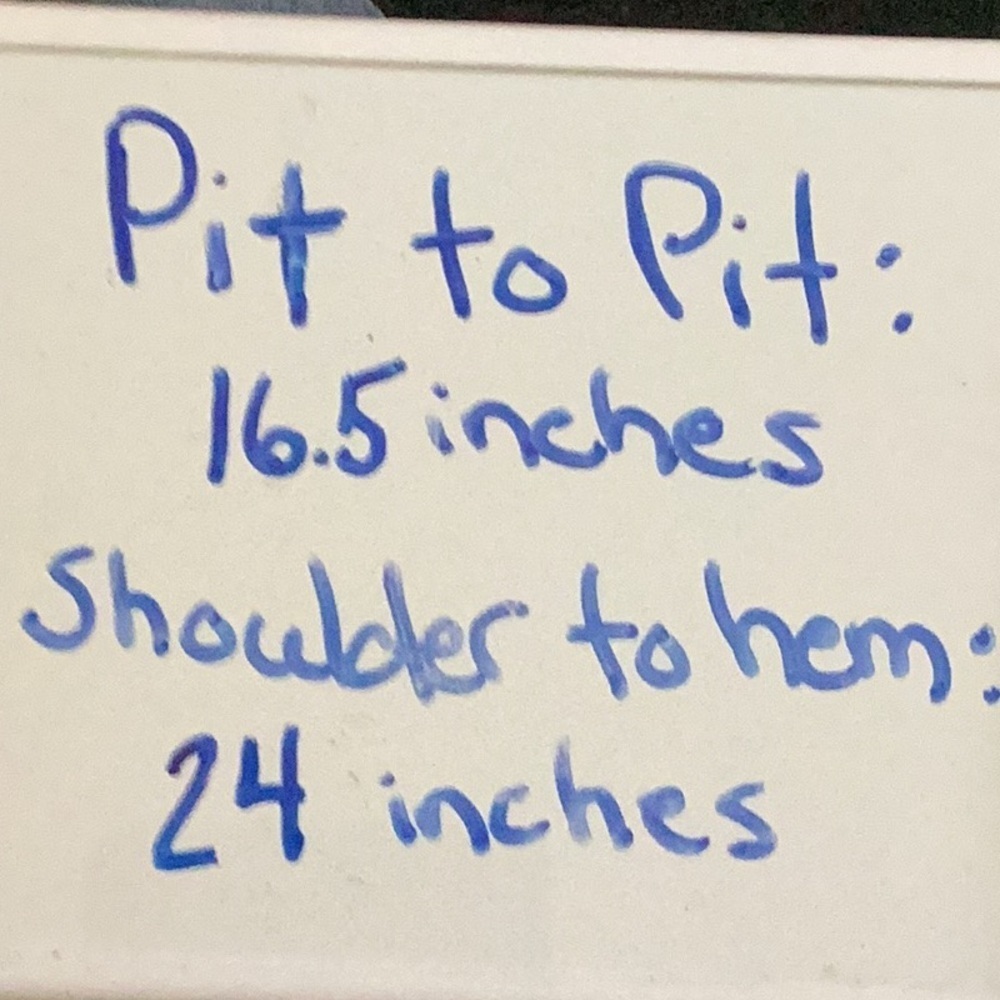 Pit to Pit:
16.5 inches
Shoulder to hem:
24 inches